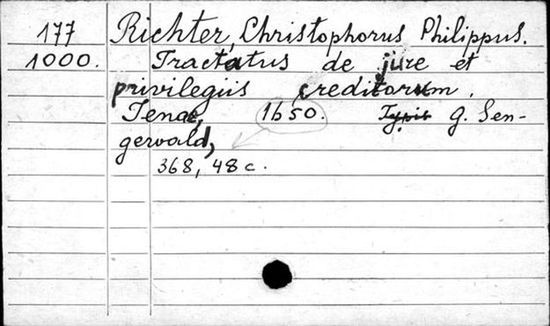 177 Richter, Christophorus Philippus.
1000. Tractatus de jure et
privilegiis creditorum.
Jenae, 1650. Typis G. Sen-
gerwald,
368, 48 c.